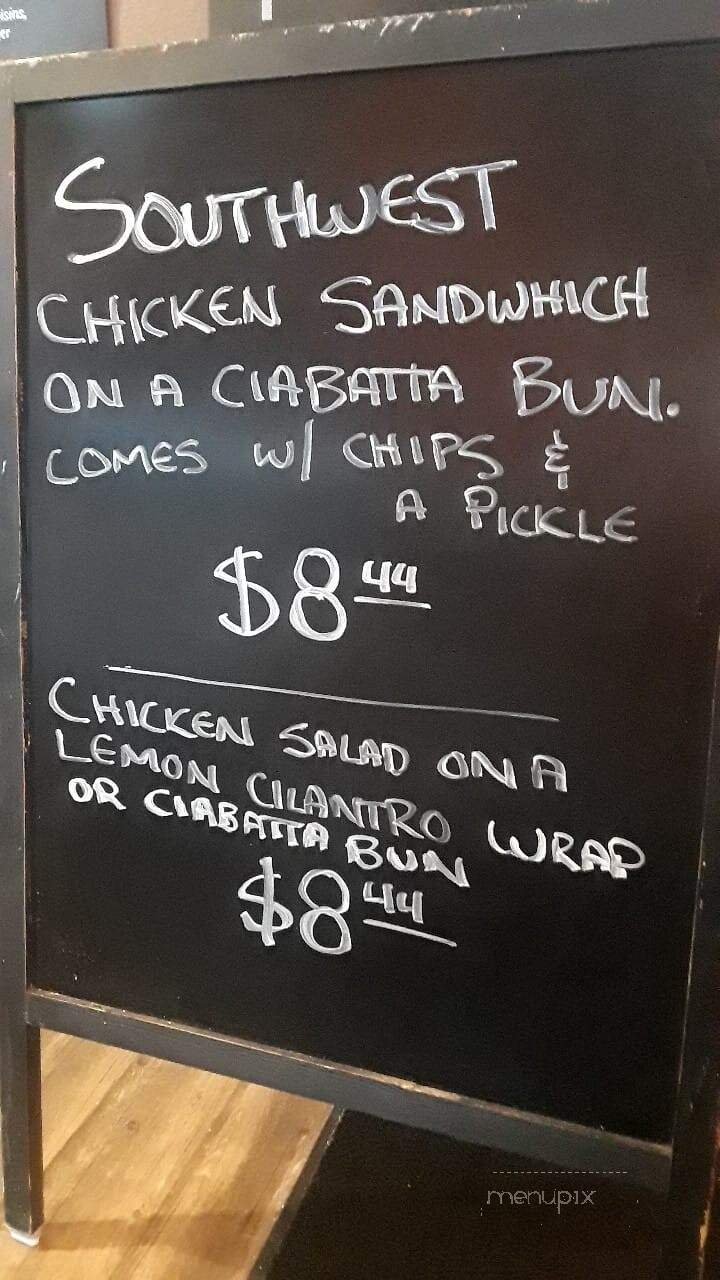 isins,
er
SOUTHWEST
CHICKEN SANDWHICH
ON A CIABATTA BUN.
COMES W/ CHIPS &
A PICKLE
$8 44
CHICKEN SALAD ON A
LEMON CILANTRO WRAP
OR CIABATTA BUN
$8 44
menupix